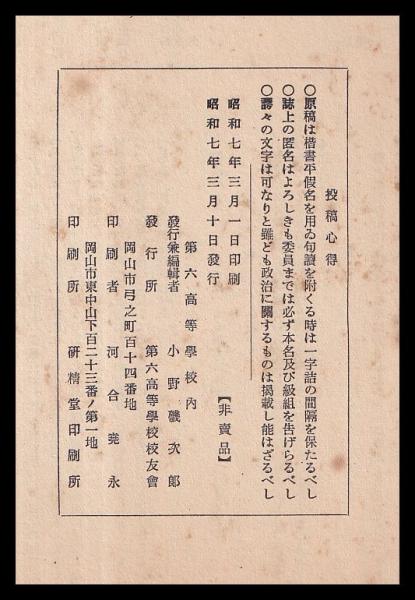 投稿心得
〇原稿は楷書平假名を用ゐ句讀を附くる時は一字詰の間隔を保たるべし
〇誌上の匿名はよろしきも委員までは必ず本名及び級組を告げらるべし
〇諤々の文字は可なりと雖ども政治に關するものは揭載し能はざるべし
昭和七年三月一日印刷
昭和七年三月十日發行
【非賣品】
第六高等學校內
發行兼編輯者 小野磯次郞
發行所 第六高等學校校友會
岡山市弓之町百十四番地
印刷者 河合堯永
岡山市東中山下百二十三番ノ第一地
印刷所 硏精堂印刷所